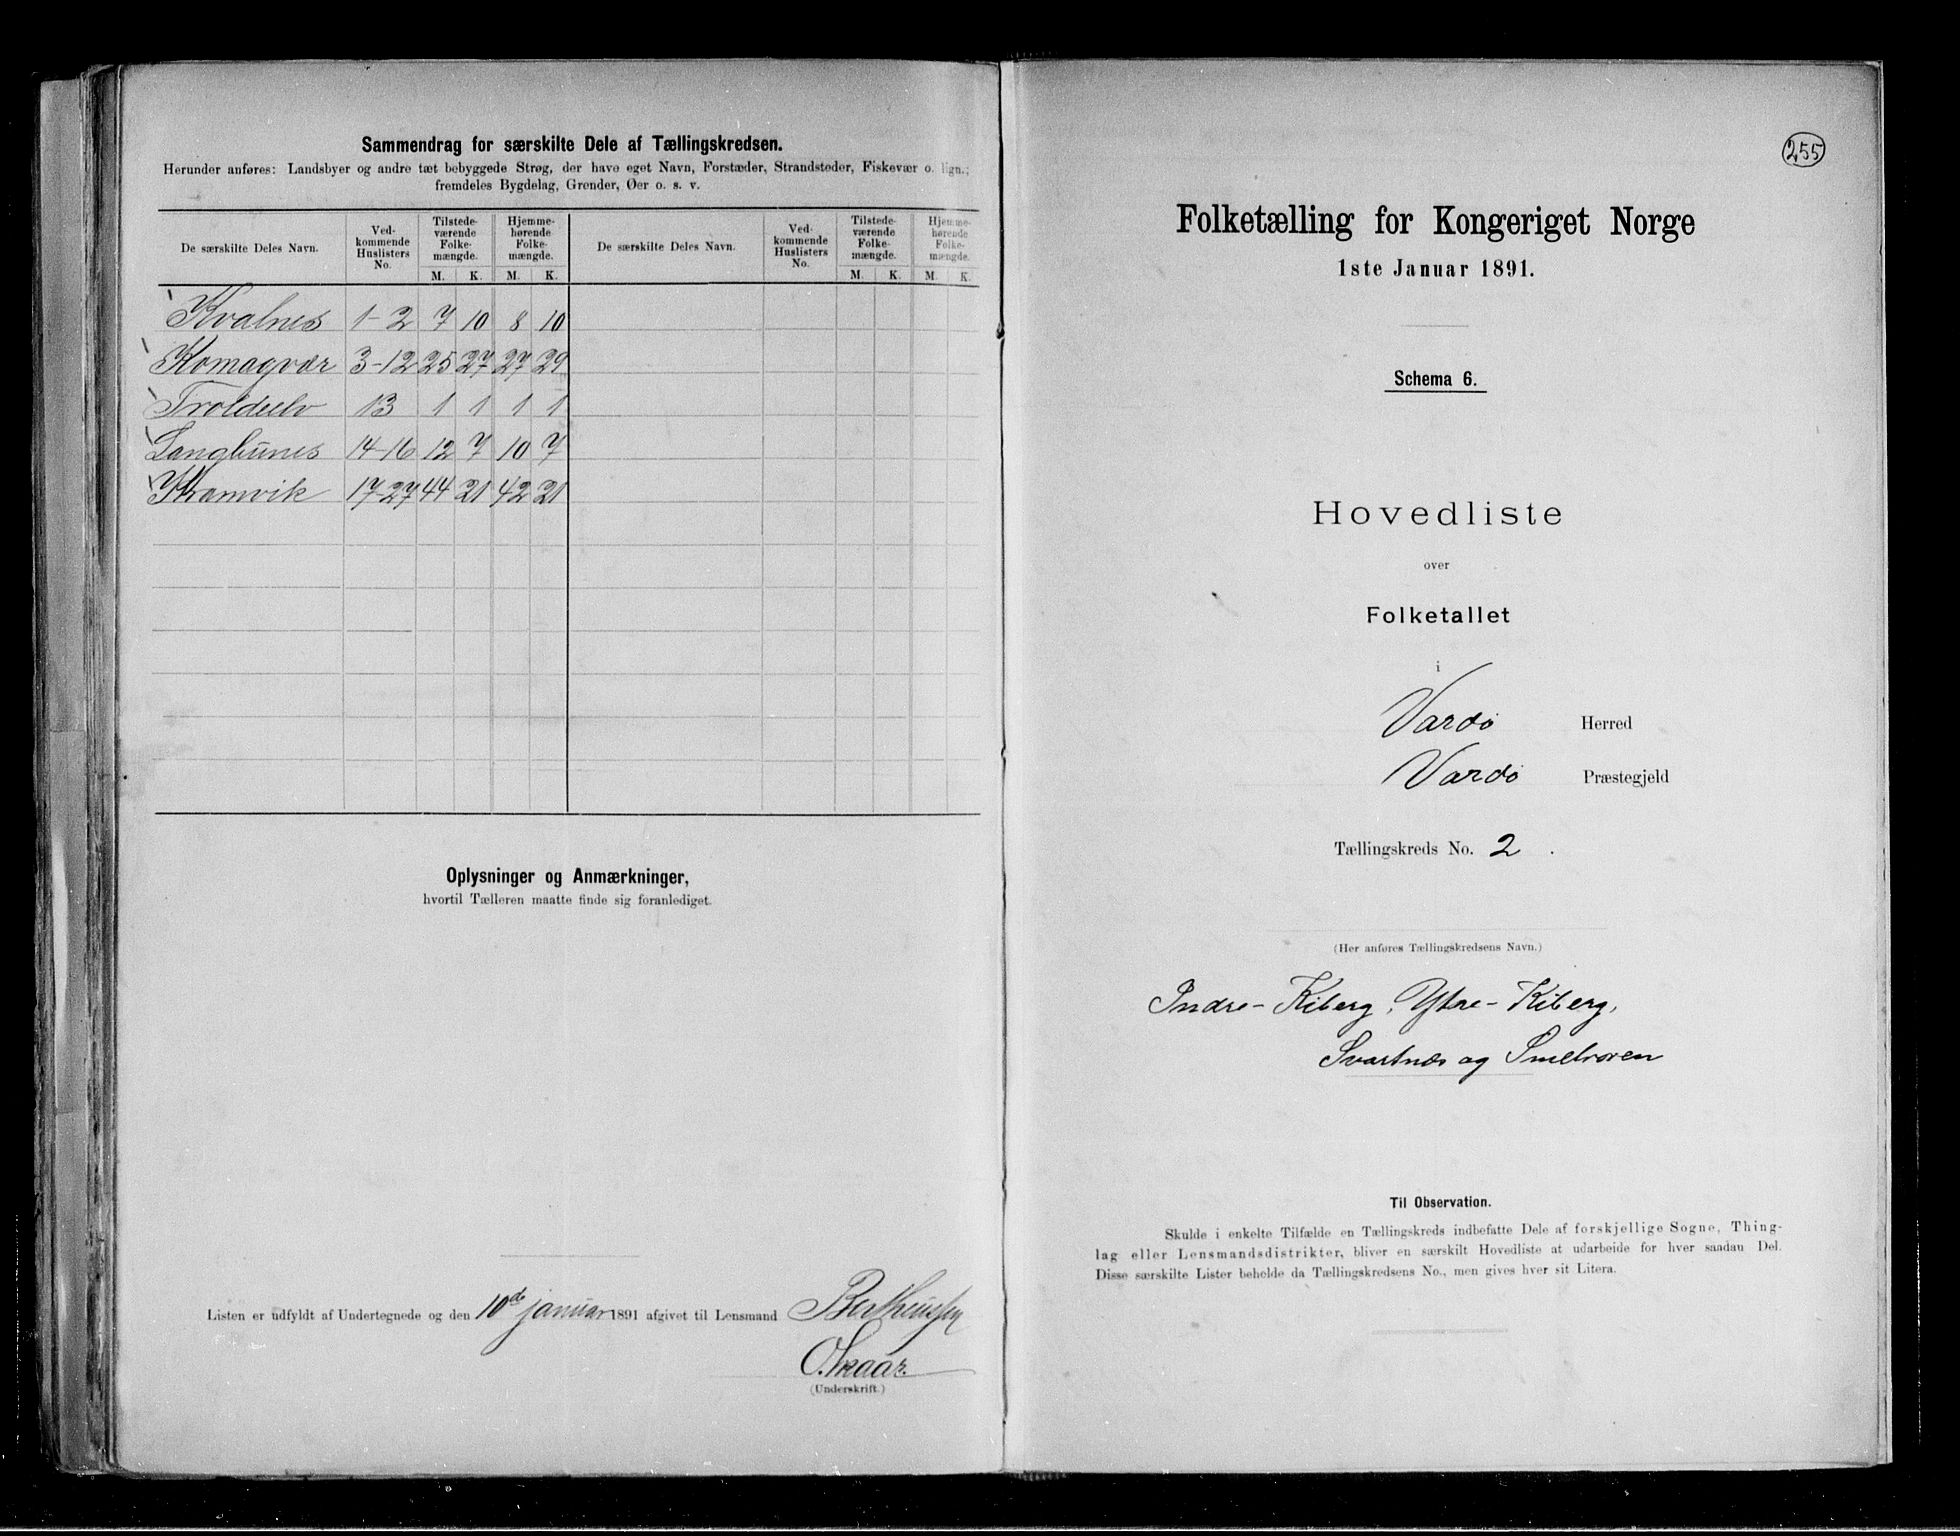 Sammendrag for særskilte Dele af Tællingskredsen.
Herunder anføres: Landsbyer og andre tæt bebyggede Strøg, der have eget Navn, Forstæder, Strandsteder, Fiskevær o. lign.;
fremdeles Bygdelag, Grender, Øer o. s. v.
De særskilte Deles Navn. Ved-kommende Huslisters No. Tilstede-værende Folke-mængde. M. K. Hjemme-hørende Folke-mængde. M. K. De særskilte Deles Navn. Ved-kommende Huslisters No. Tilstede-værende Folke-mængde. M. K. Hjemme-hørende Folke-mængde. M. K.
Kvalnes 1-2 7 10 8 10
Komagvær 3-12 25 27 27 29
Troldelv 13 1 1 1 1
Langbunes 14-16 12 7 10 7
Kramvik 17-27 44 21 42 21
Oplysninger og Anmærkninger,
hvortil Tælleren maatte finde sig foranlediget.
Listen er udfyldt af Undertegnede og den 10de januar 1891 afgivet til Lensmand Bertheussen
O. Skaar.
(Underskrift.)
255
Folketælling for Kongeriget Norge
1ste Januar 1891.
Schema 6.
Hovedliste
over
Folketallet
i
Vardö Herred
Vardö Præstegjeld
Tællingskreds No. 2.
(Her anføres Tællingskredsens Navn.)
Indre-Kiberg, Ytre-Kiberg,
Svartnæs og Smelroren
Til Observation.
Skulde i enkelte Tilfælde en Tællingskreds indbefatte Dele af forskjellige Sogne, Thing-
lag eller Lensmandsdistrikter, bliver en særskilt Hovedliste at udarbeide for hver saadan Del.
Disse særskilte Lister beholde da Tællingskredsens No., men gives hver sit Litera.